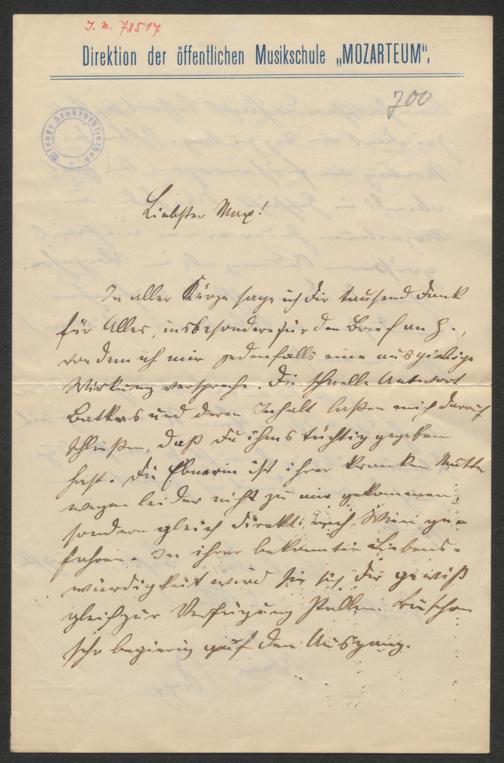 J. N. 78517
Direktion der öffentlichen Musikschule „MOZARTEUM“.
700
Liebster Max!
In aller Kürze sage ich Dir tausend Dank
für Alles, insbesondere für den Brief an H.,
von dem ich mir jedenfalls eine ausgiebige
Wirkung verspreche. Die schnelle Antwort
Batkas und deren Inhalt laßen mich darauf
schließen, daß Du ihms tüchtig gegeben
hast. Die Ebnerin ist ihrer kranken Mutter
wegen leider nicht zu mir gekommen,
sondern gleich direkt nach Wien ge-
fahren. In ihrer bekannten Liebens-
würdigkeit wird sie sich Dir gewiß
gleich zur Verfügung stellen. Bin schon
sehr begierig auf den Ausgang.